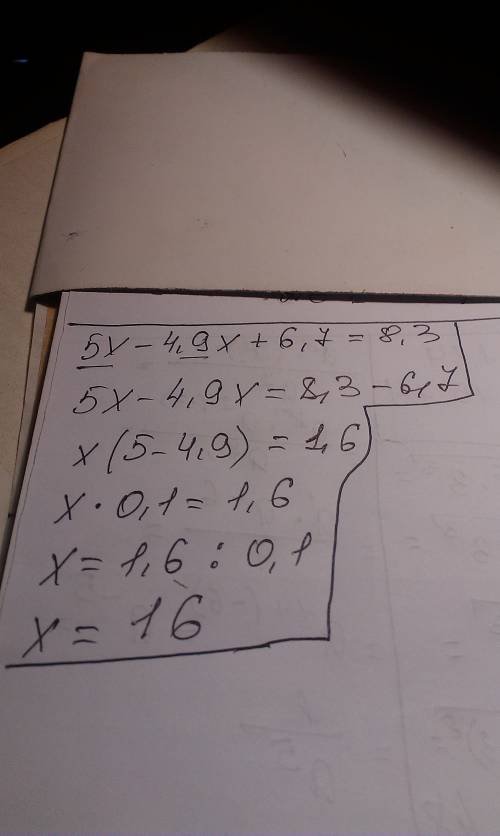 5x - 4,9x + 6,7 = 8,3
5x - 4,9x = 8,3 - 6,7
x(5 - 4,9) = 1,6
x · 0,1 = 1,6
x = 1,6 : 0,1
x = 16